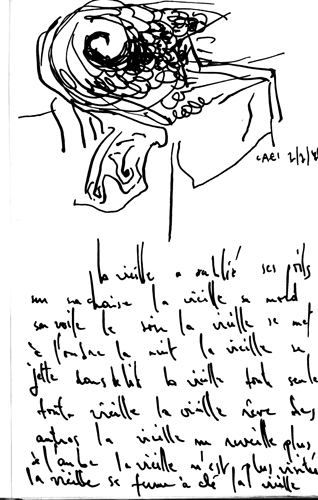 CAEI 2/2/
la vieille a oublié ses
sur sa chaise la vieille se mord
la vieille se met
à l'ombre la nuit la vieille se
jette dans le lit la vieille toute seule
toute vieille la vieille rêve des
autres la vieille ne réveille plus
à l'aube la vieille n'est plus
la vieille se ferme à clé la vieille